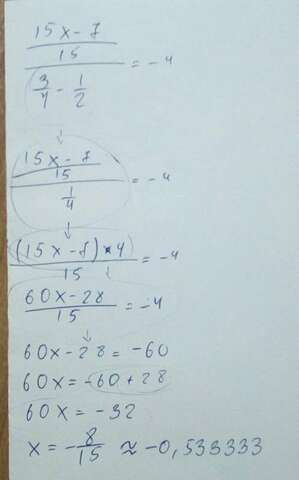 15x-7
15
3/4 - 1/2 = -4
↓
15x-7
15
1/4 = -4
↓
(15x-7)*4
15 = -4
60x-28
15 = -4
↓
60x-28 = -60
60x = -60+28
60x = -32
x = -8/15 ≈ -0,533333